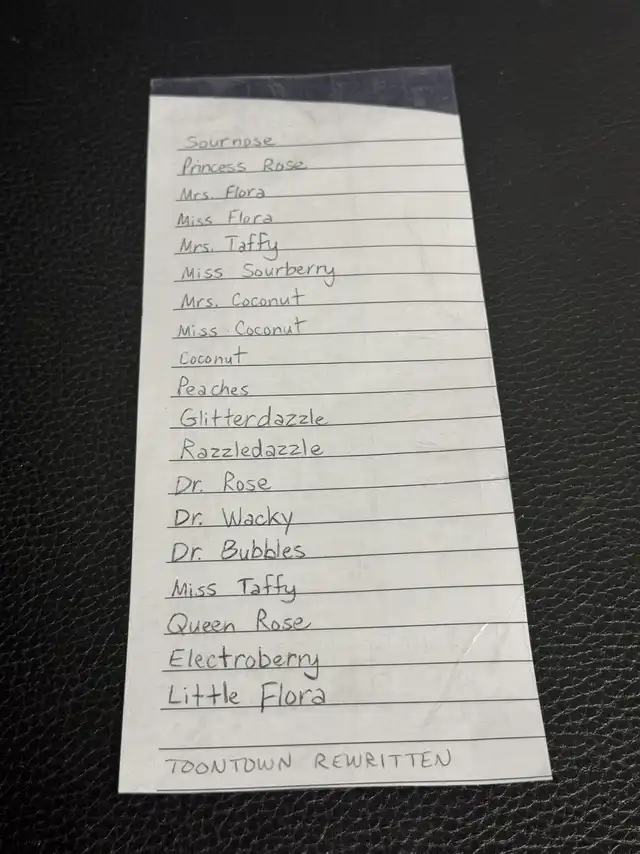 Sournose
Princess Rose
Mrs. Flora
Miss Flora
Mrs. Taffy
Miss Sourberry
Mrs. Coconut
Miss Coconut
Coconut
Peaches
Glitterdazzle
Razzledazzle
Dr. Rose
Dr. Wacky
Dr. Bubbles
Miss Taffy
Queen Rose
Electroberry
Little Flora
TOONTOWN REWRITTEN